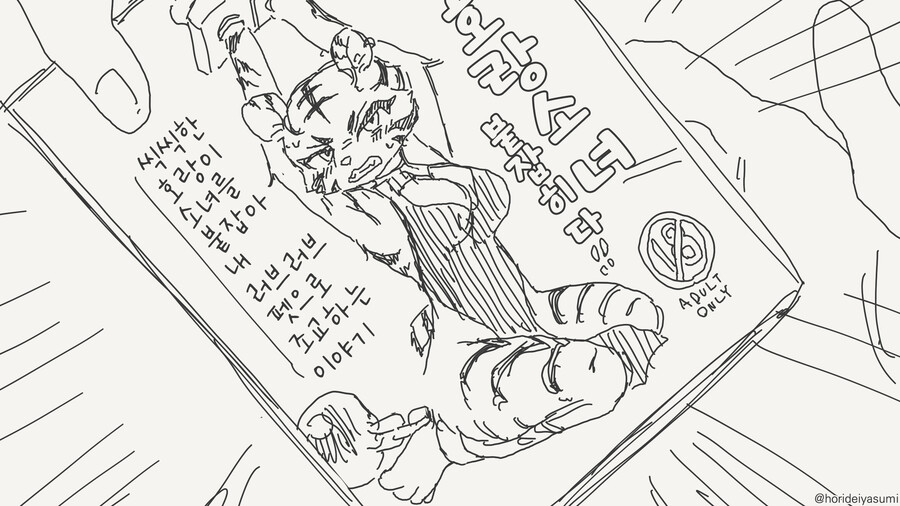 씩씩한
호랑이
소녀를
붙잡아
내
러브러브
펫으로
조교하는
이야기
붙잡히다
19
ADULT
ONLY
@horideiyasumi